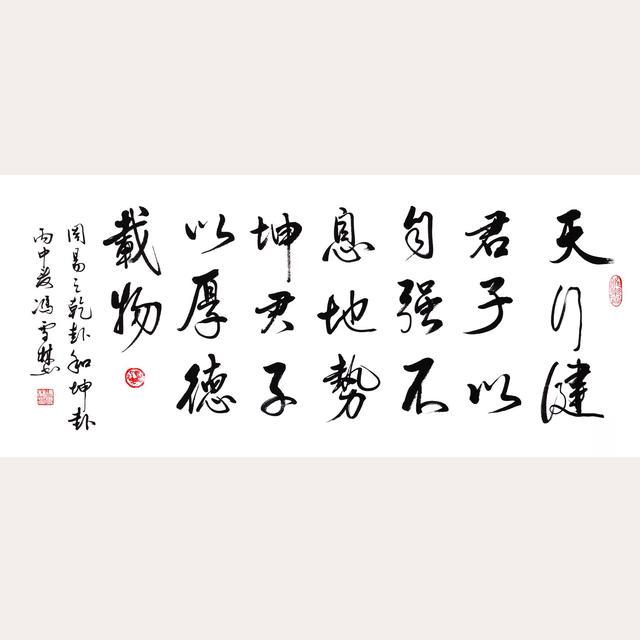 天行健
君子以
自强不
息地勢
坤君子
以厚德
載物
周易之乾卦和坤卦
丙申岁冯雪